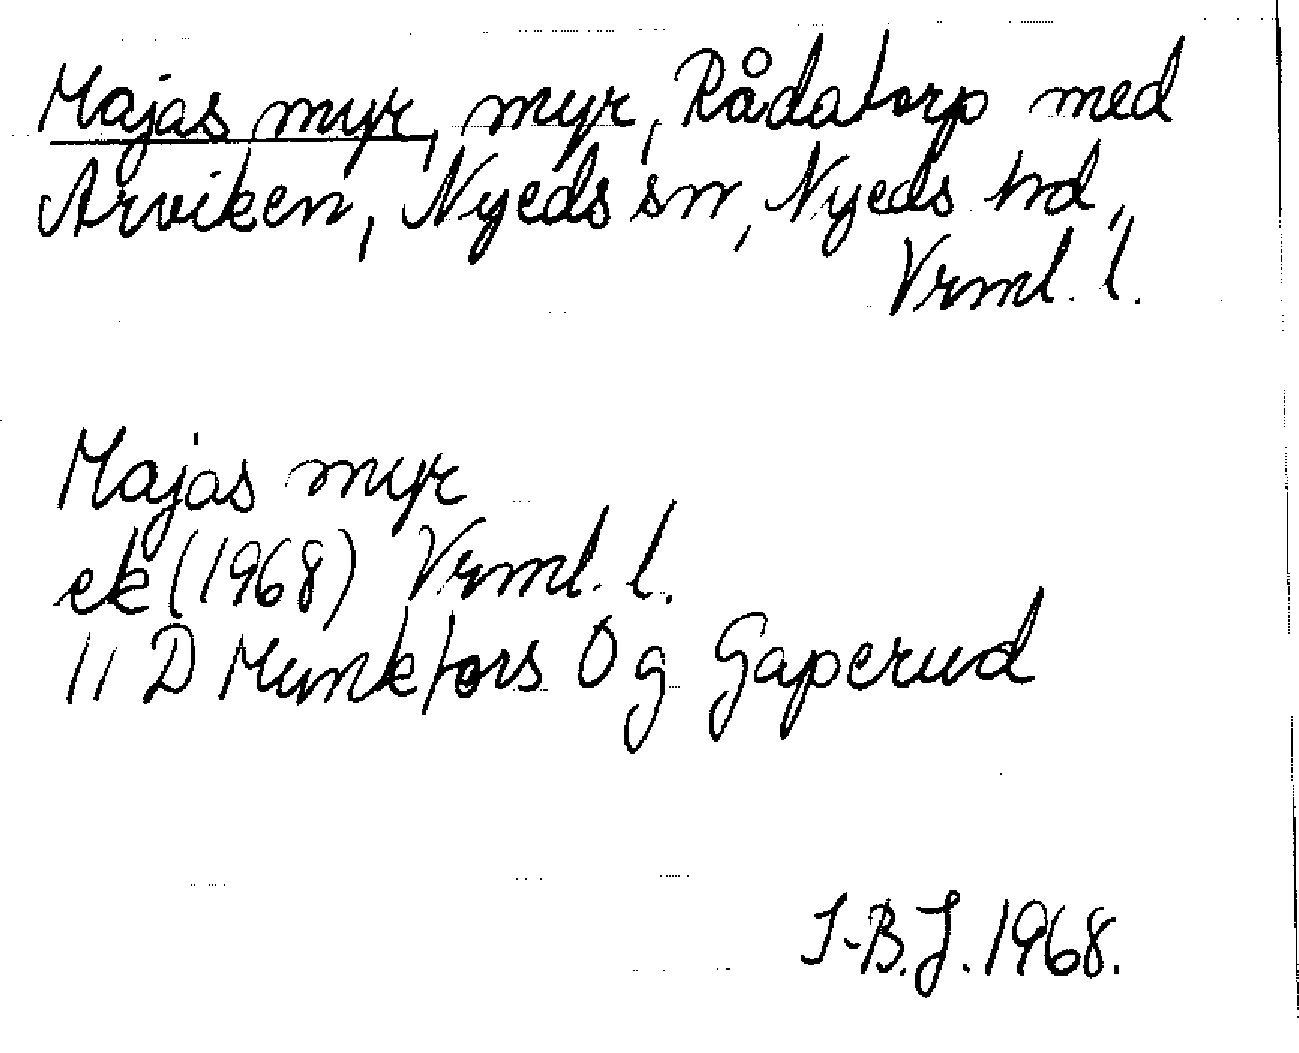 Majas myr, myr, Rådatorp med
Arviken, Nyeds sn, Nyeds hd,
Vrml. l.
Majas myr
ek (1968) Vrml. l.
11 D Munkfors 0 g Gaperud
I-B.J. 1968.